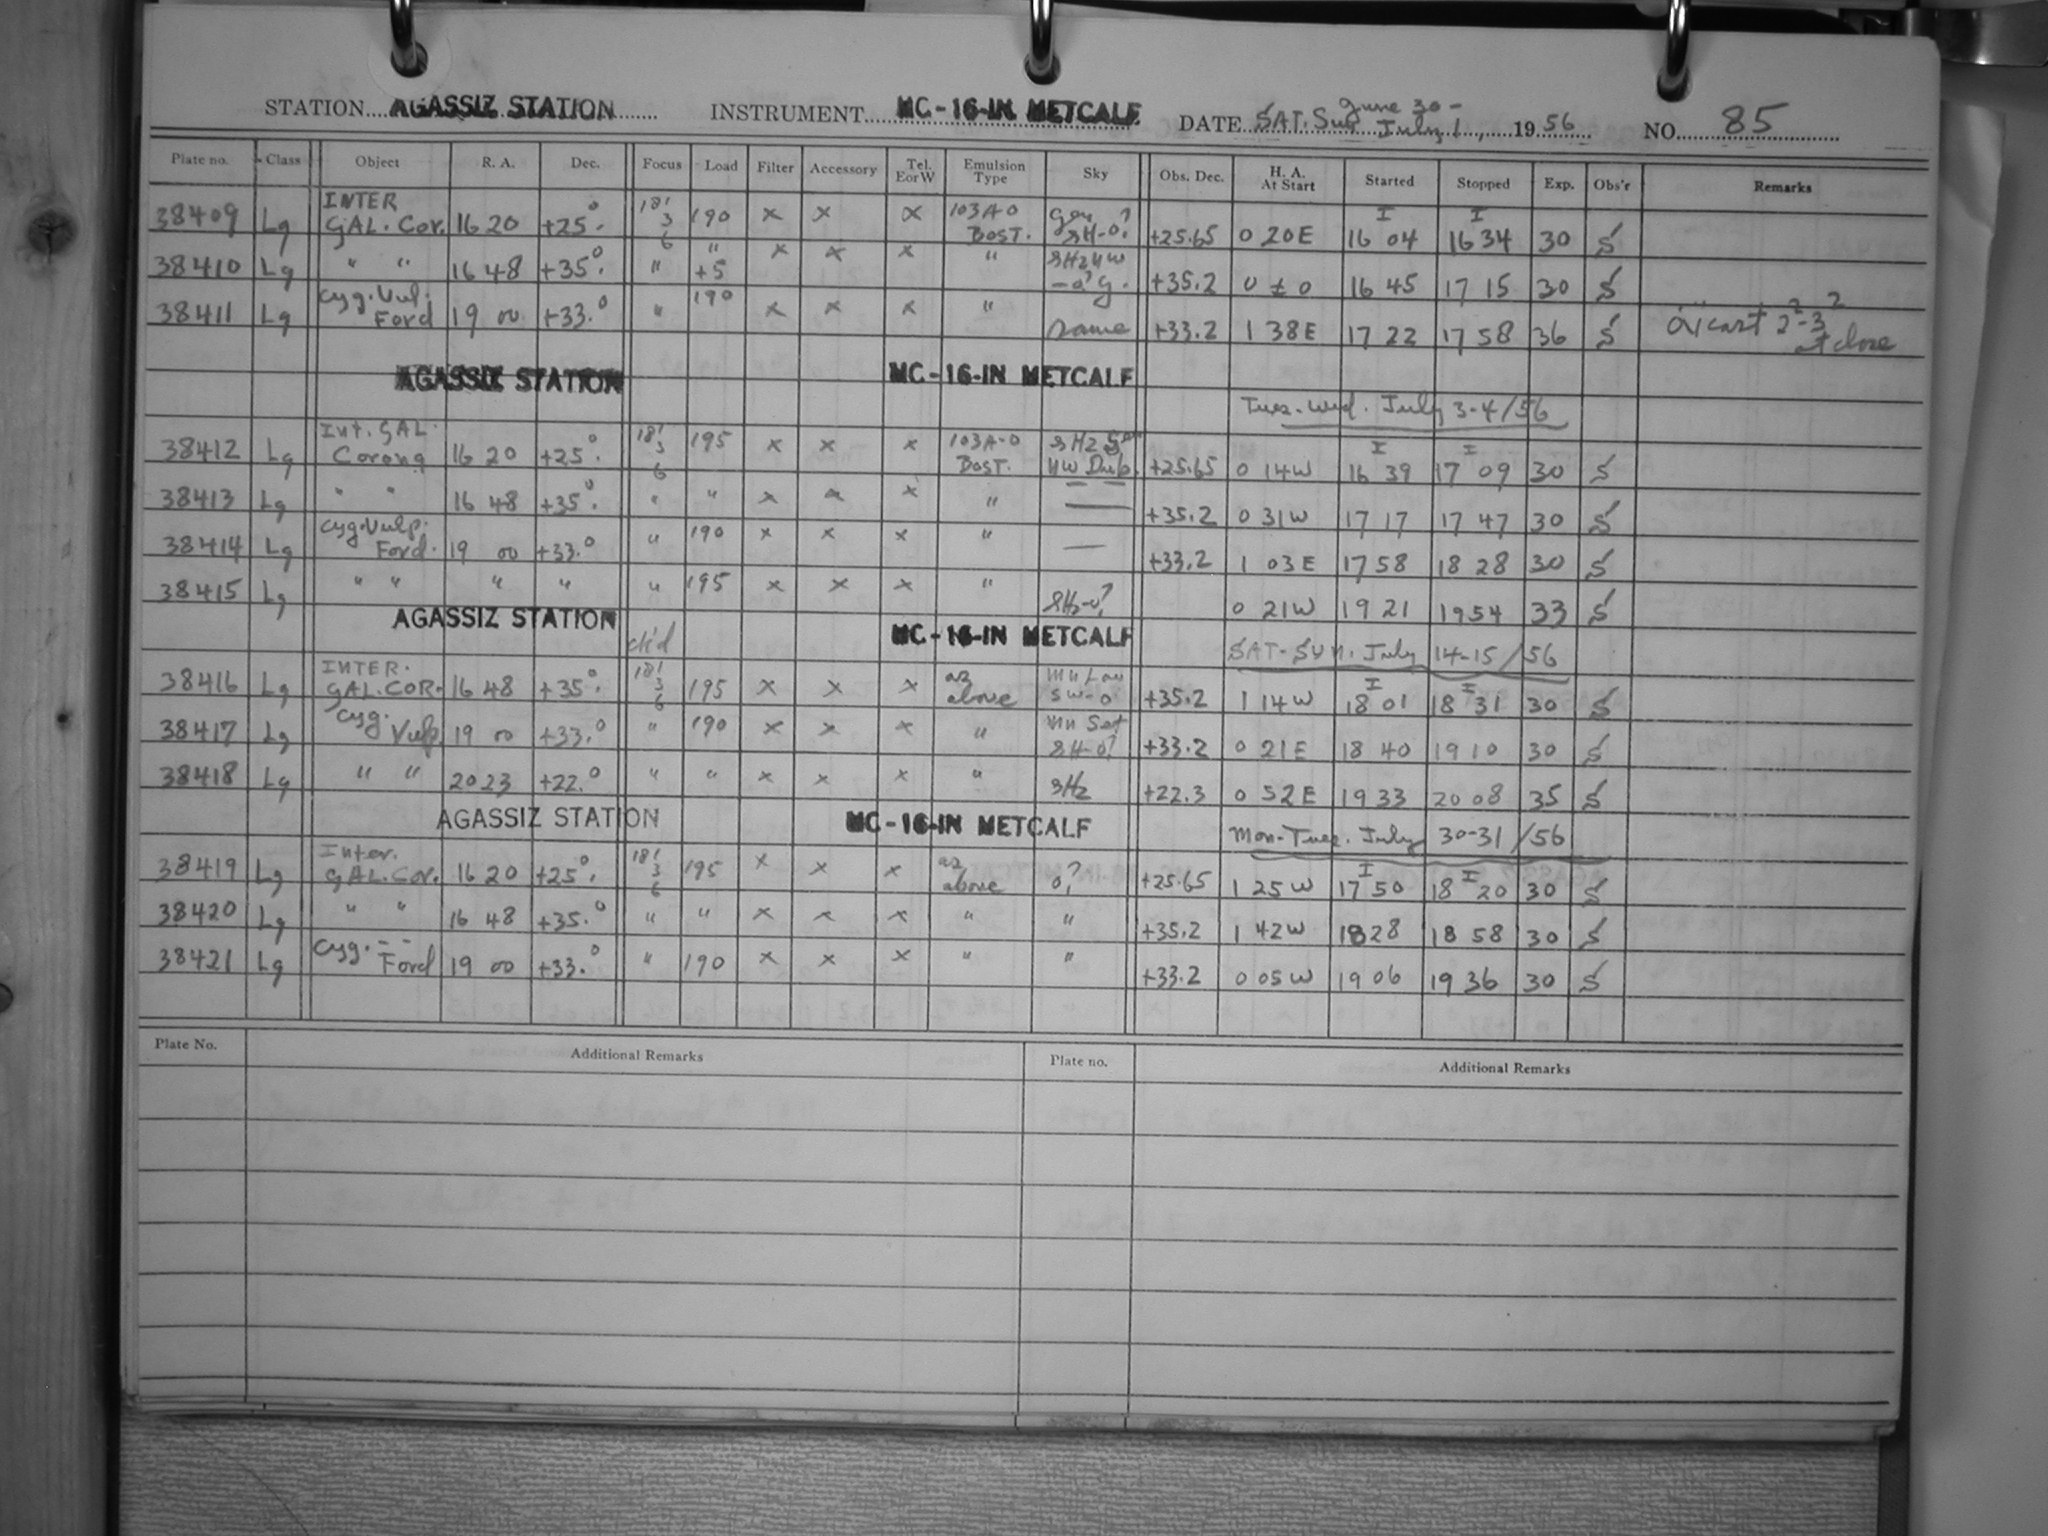 STATION AGASSIZ STATION INSTRUMENT MC-16-IN METCALF DATE SAT. Sun June 30 - July 1, 1956 NO. 85
Plate no. Class Object R. A. Dec. Focus Load Filter Accessory Tel. E or W Emulsion Type Sky Obs. Dec. H. A. At Start Started Stopped Exp. Obs'r Remarks
38409 Lg INTER GAL. Cor. 16 20 +25.° 18 1/3 6 190 x x x 103A-O BOST. +25.65 0 20E I 16 04 I 16 34 30 S
38410 Lg " " 16 48 +35.° " " +5 x x x " +35.2 0 ± 0 16 45 17 15 30 S
38411 Lg Cyg. Vul. Ford 19 00 +33.° " 190 x x x " same +33.2 1 38E 17 22 17 58 36 S close
AGASSIZ STATION MC-16-IN METCALF
Tues.-Wed. July 3-4/56
38412 Lg Int. GAL. Corona 16 20 +25.° 18 1/3 6 195 x x x 103A-O BOST. +25.65 0 14W I 16 39 I 17 09 30 S
38413 Lg " " 16 48 +35.° " " x x x " — +35.2 0 31W 17 17 17 47 30 S
38414 Lg Cyg. Vulp. Ford. 19 00 +33.° " 190 x x x " — +33.2 1 03E 17 58 18 28 30 S
38415 Lg " " " " " 195 x x x " 0 21W 19 21 19 54 33 S
AGASSIZ STATION MC-16-IN METCALF
SAT-SUN. July 14-15/56
38416 Lg INTER. GAL. COR. 16 48 +35.° ck'd 18 1/3 6 195 x x x as above +35.2 1 14W I 18 01 I 18 31 30 S
38417 Lg Cyg. Vulp. 19 00 +33.° " 190 x x x " +33.2 0 21E 18 40 19 10 30 S
38418 Lg " " 20 23 +22.° " " x x x " +22.3 0 52E 19 33 20 08 35 S
AGASSIZ STATION MC-16-IN METCALF
Mon-Tues. July 30-31/56
38419 Lg Inter. GAL. Cor. 16 20 +25.° 18 1/3 6 195 x x x as above o? +25.65 1 25W I 17 50 I 18 20 30 S
38420 Lg " " 16 48 +35.° " " x x x " " +35.2 1 42W 18 28 18 58 30 S
38421 Lg Cyg. - - Ford 19 00 +33.° " 190 x x x " " +33.2 0 05W 19 06 19 36 30 S
Plate No. Additional Remarks Plate no. Additional Remarks